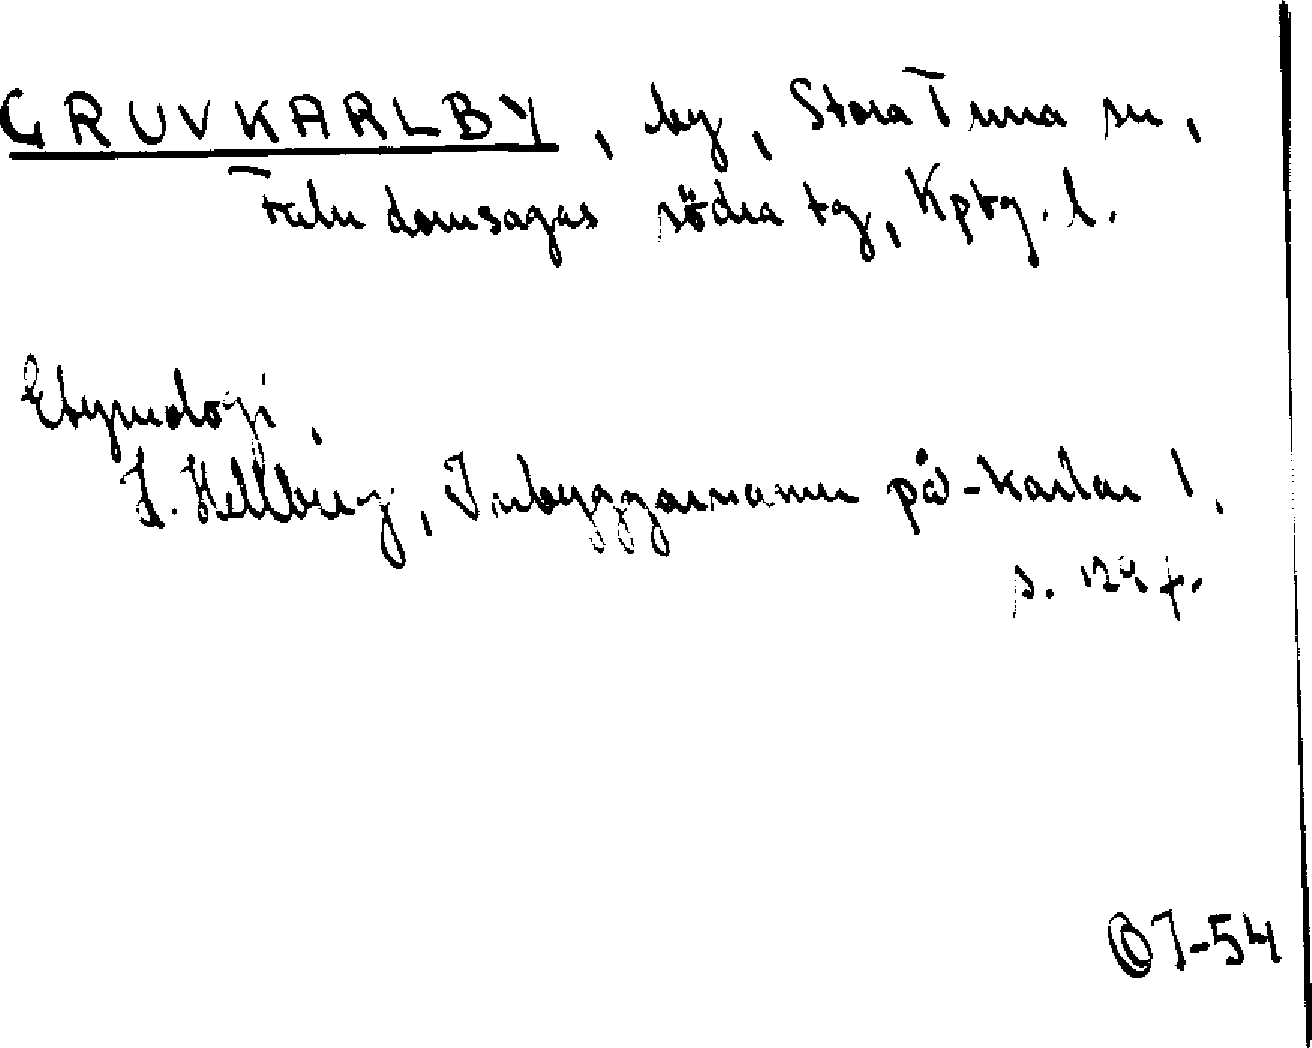 GRUVKARLBY, by, Stora Tuna sn,
Falu domsagas södra tg, Kpbg. l.
Etymologi,
L. Hellberg, Inbyggarnamn på -karlar 1,
s. 129 f.
© 7-54